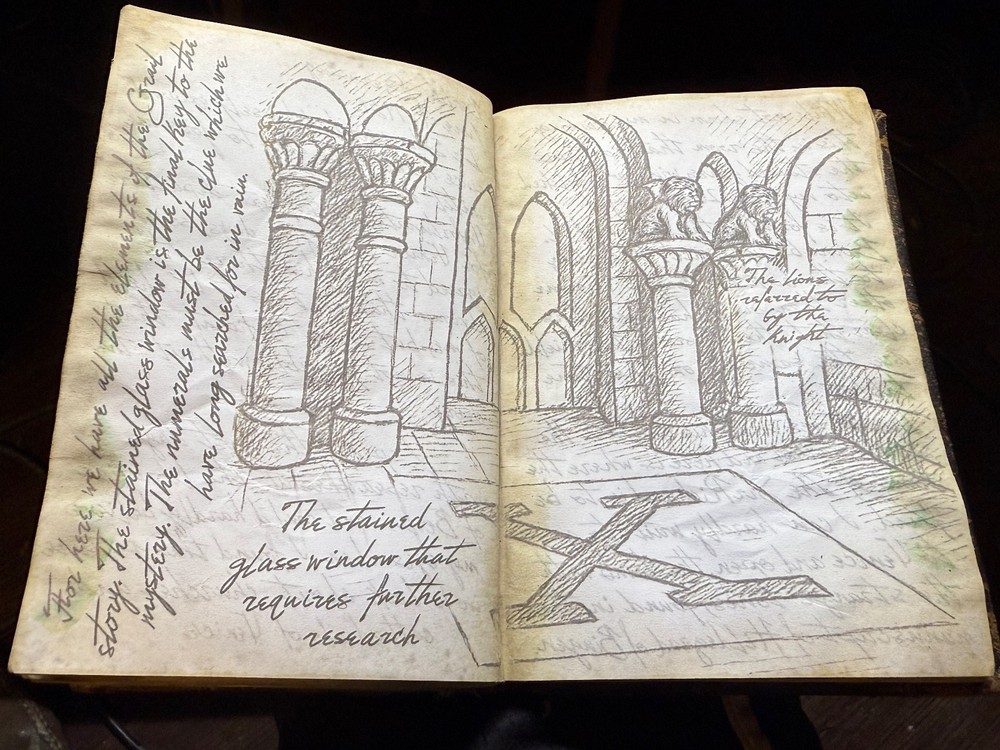 For here we have all the elements of the Grail
story. The stained glass window is the final key to the
mystery. The numerals must be the clue which we
have long searched for in vain.
The stained
glass window that
requires further
research
The lions
referred to
by the
knight
X